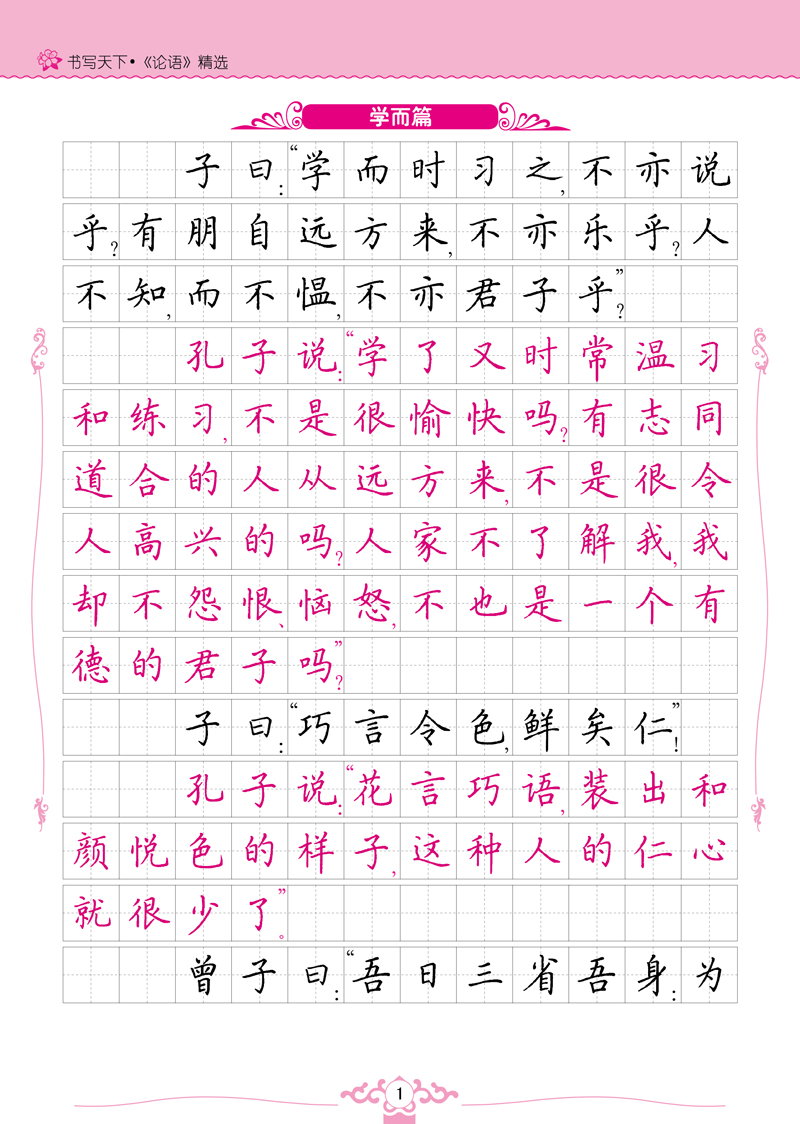 书写天下•《论语》精选
学而篇
子曰：“学而时习之，不亦说
乎？有朋自远方来，不亦乐乎？人
不知，而不愠，不亦君子乎”？
孔子说：“学了又时常温习
和练习，不是很愉快吗？有志同
道合的人从远方来，不是很令
人高兴的吗？人家不了解我，我
却不怨恨、恼怒，不也是一个有
德的君子吗”？
子曰：“巧言令色，鲜矣仁”！
孔子说：“花言巧语，装出和
颜悦色的样子，这种人的仁心
就很少了”。
曾子曰：“吾日三省吾身：为
1